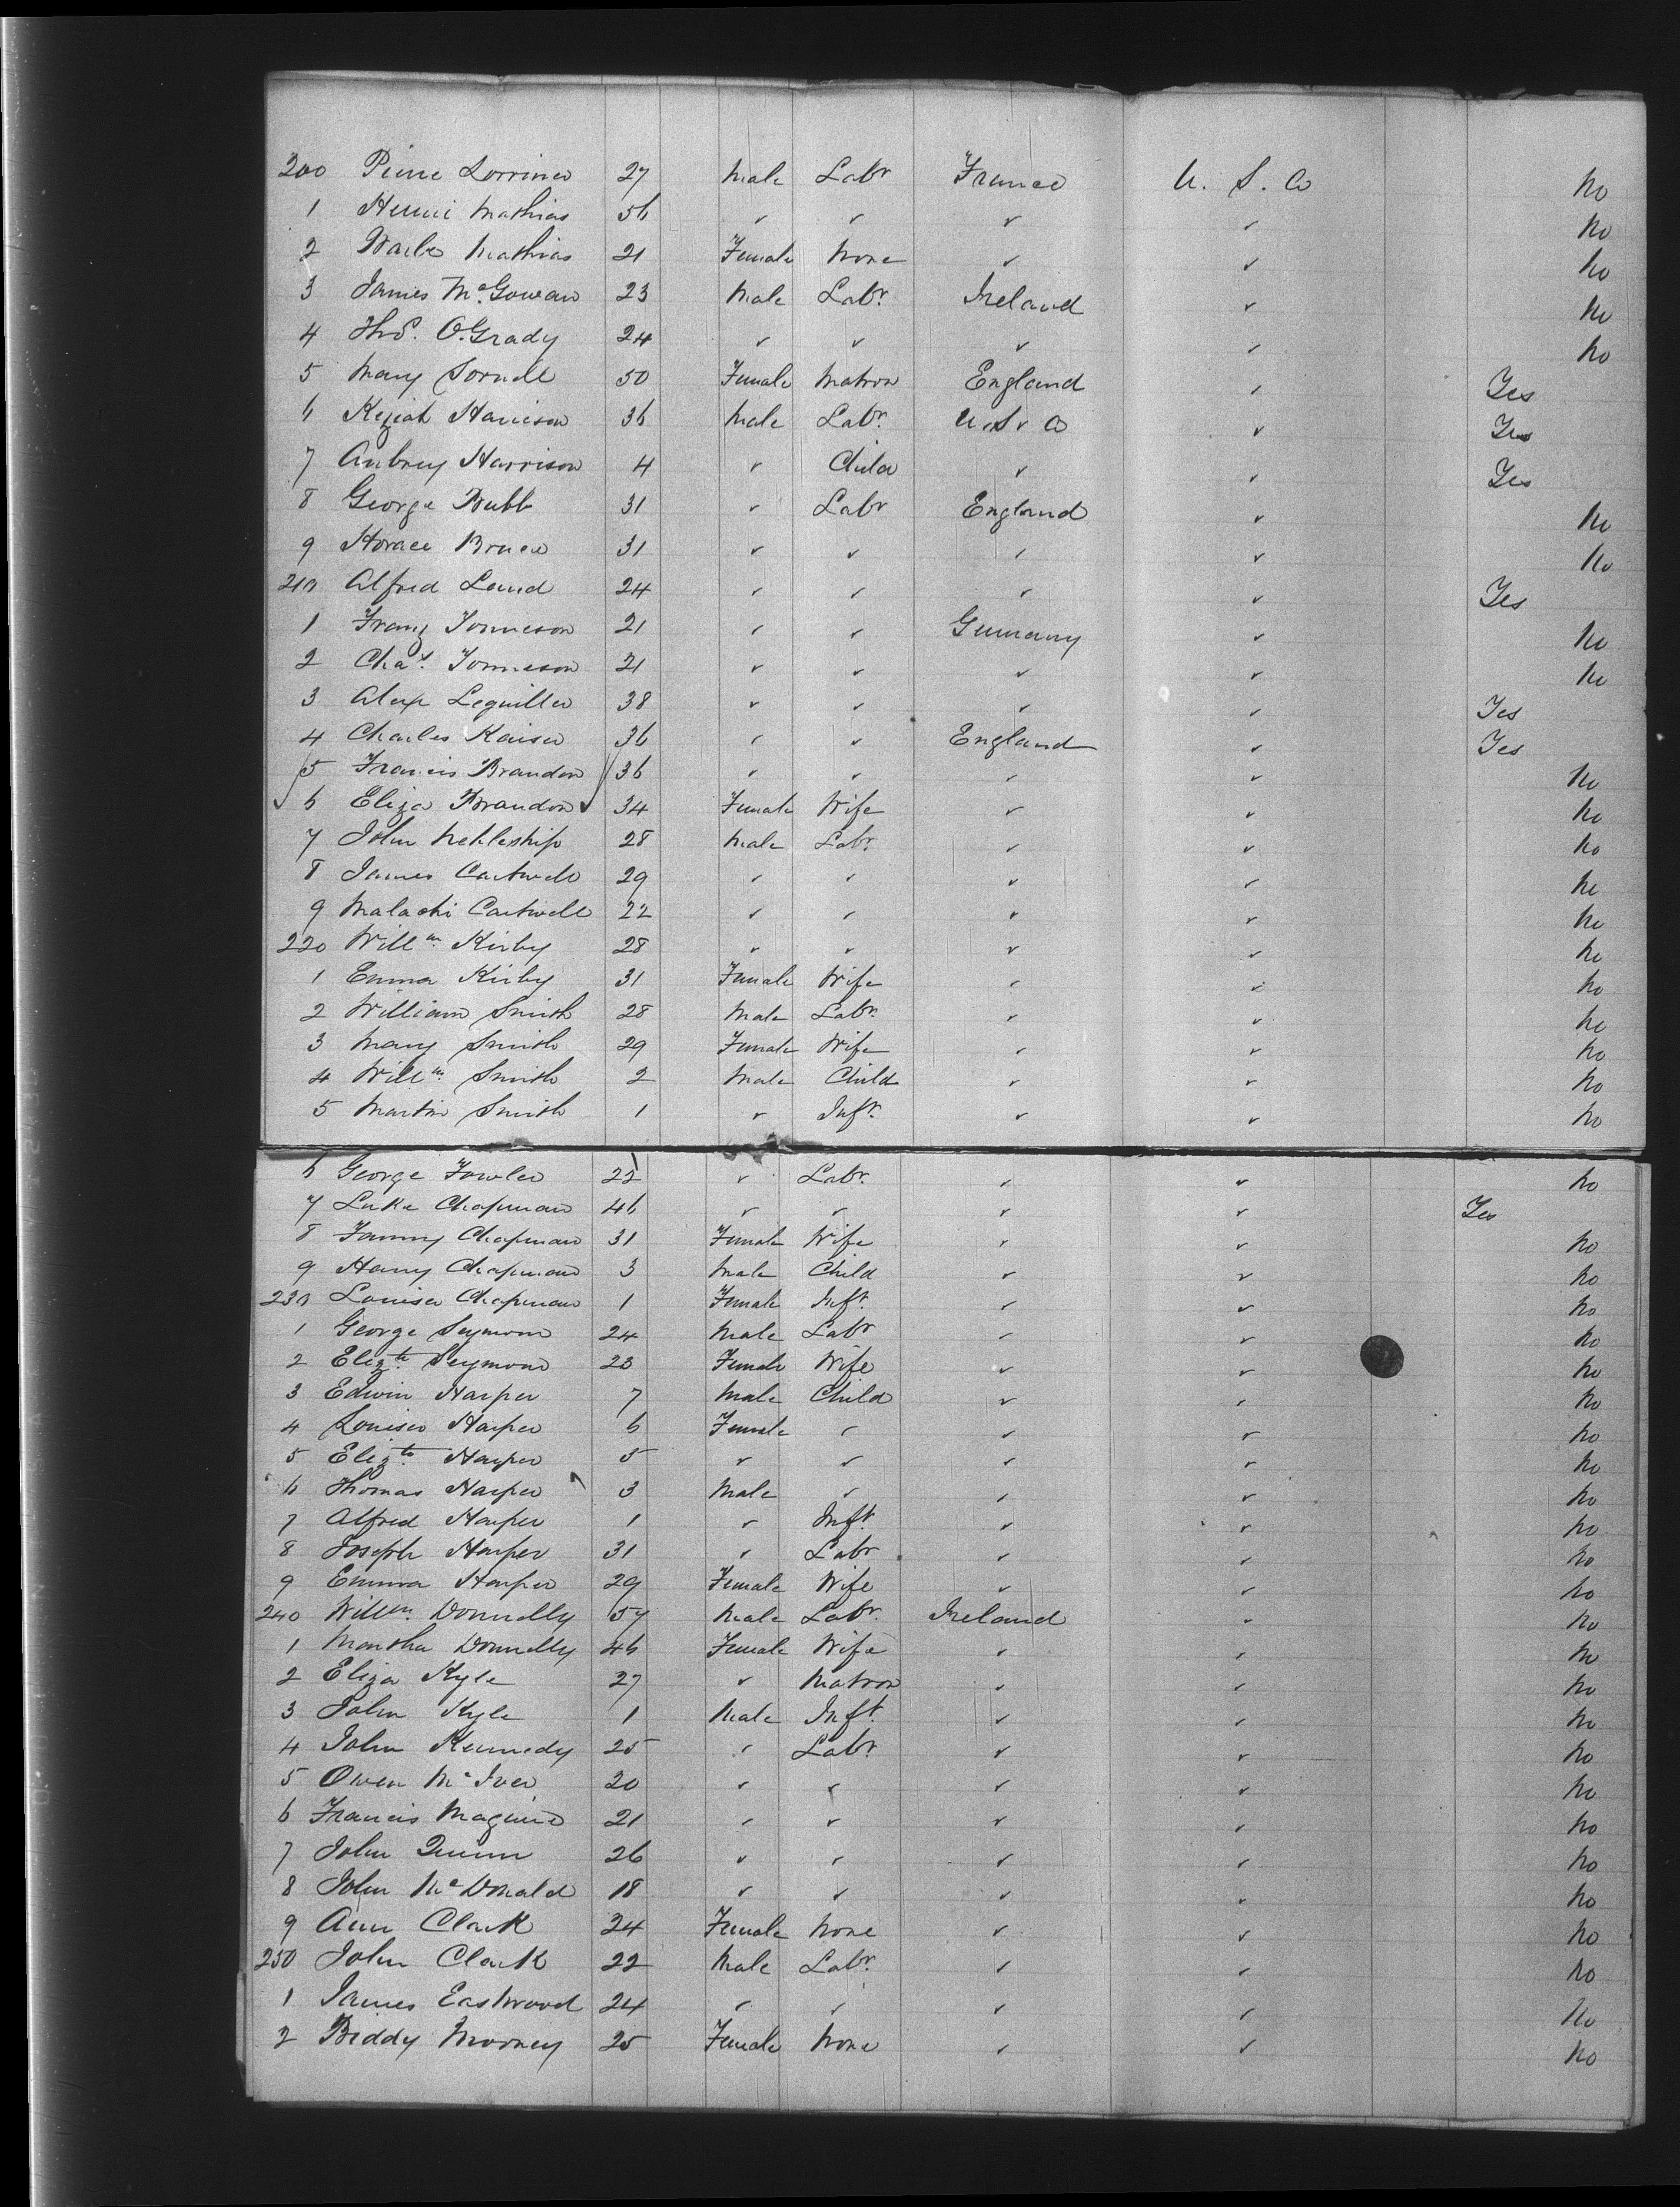 200 Pierre Lorrines 27 Male Labr France U. S. Co No
1 Henri Mathias 56 " " " " No
2 Barbe Mathias 21 Female None " " No
3 James McGowan 23 Male Labr. Ireland " No
4 Thos. O'Grady 24 " " " " No
5 Mary 50 Female Matron England " Yes
6 Keziah Harrison 36 Male Labr. U. S. Co " Yes
7 Aubrey Harrison 4 " Child " " Yes
8 George Bubb 31 " Labr England " No
9 Horace Bruce 31 " " " " No
210 Alfred 24 " " " " Yes
1 Franz Tonneson 21 " " Germany " No
2 Chas. Tonneson 21 " " " " No
3 Alex Leguiller 38 " " " " Yes
4 Charles Kaiser 36 " " England " Yes
5 Francis Brandon 36 " " " " No
6 Eliza Brandon 34 Female Wife " " No
7 John Nettleship 28 Male Labr. " " No
8 James Cartwell 29 " " " " No
9 Malachi Cartwell 22 " " " " No
220 Willm Kirby 28 " " " " No
1 Emma Kirby 31 Female Wife " " No
2 William Smith 28 Male Labr. " " No
3 Mary Smith 29 Female Wife " " No
4 Willm. Smith 2 Male Child " " No
5 Martin Smith 1 " Inft. " " No
6 George Fowler 22 " Labr. " " No
7 Luke Chapman 46 " " " " Yes
8 Fanny Chapman 31 Female Wife " " No
9 Harry Chapman 3 Male Child " " No
230 Louisa Chapman 1 Female Inft. " " No
1 George Seymour 24 Male Labr " " No
2 Elizth. Seymour 23 Female Wife " " No
3 Edwin Harper 7 Male Child " " No
4 Louisa Harper 6 Female " " " No
5 Elizth. Harper 5 " " " " No
6 Thomas Harper 3 Male " " " No
7 Alfred Harper 1 " Inft. " " No
8 Joseph Harper 31 " Labr. " " No
9 Emma Harper 29 Female Wife " " No
240 Willm. Donnelly 57 Male Labr. Ireland " No
1 Martha Donnelly 46 Female Wife " " No
2 Eliza Kyle 27 " Matron " " No
3 John Kyle 1 Male Inft. " " No
4 John Kennedy 25 " Labr. " " No
5 Owen McIver 20 " " " " No
6 Francis Maguire 21 " " " " No
7 John Quinn 26 " " " " No
8 John McDonald 18 " " " " No
9 Ann Clark 24 Female None " " No
250 John Clark 22 Male Labr. " " No
1 James Eastwood 24 " " " " No
2 Biddy Mooney 25 Female None " " No